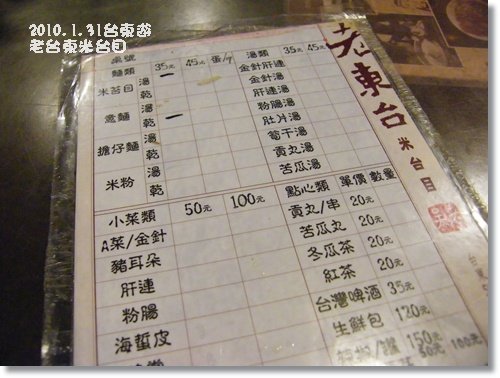 2010.1.31台東遊
老台東米台目
桌號 35元 45元 蛋/7 湯類 35元 45元
麵類 湯 金針肝連
米苔目 乾 金針湯
湯 肝連湯
意麵 乾 粉腸湯
湯 肚片湯
擔仔麵 乾 筍干湯
湯 貢丸湯
米粉 乾 苦瓜湯
小菜類 50元 100元 點心類 單價 數量
A菜/金針 貢丸/串 20元
豬耳朵 苦瓜丸 20元
肝連 冬瓜茶 20元
粉腸 紅茶 20元
海蜇皮 台灣啤酒 35元
生鮮包 120元
150元
50元 100元
老東台
米台目